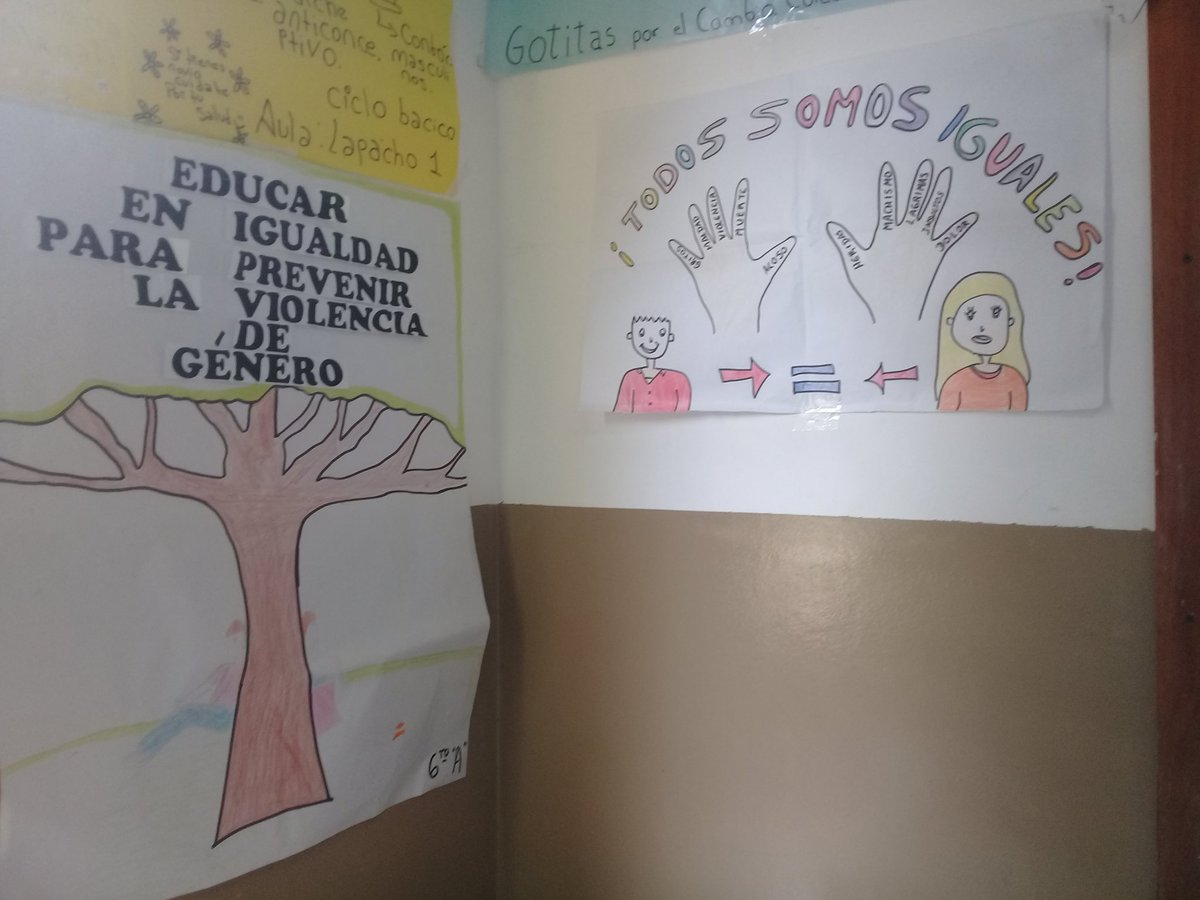 anticonce
ptivo.
masculi
nos.
ciclo bacico
Aula: Lapacho 1
EDUCAR
EN IGUALDAD
PARA PREVENIR
LA VIOLENCIA
DE
GÉNERO
6to "A"
Gotitas por el
¡TODOS SOMOS IGUALES!
GRITOS
MALDAD
VIOLENCIA
MUERTE
ACOSO
HERIDAS
MACHISMO
LAGRIMAS
INSULTOS
DOLOR
=